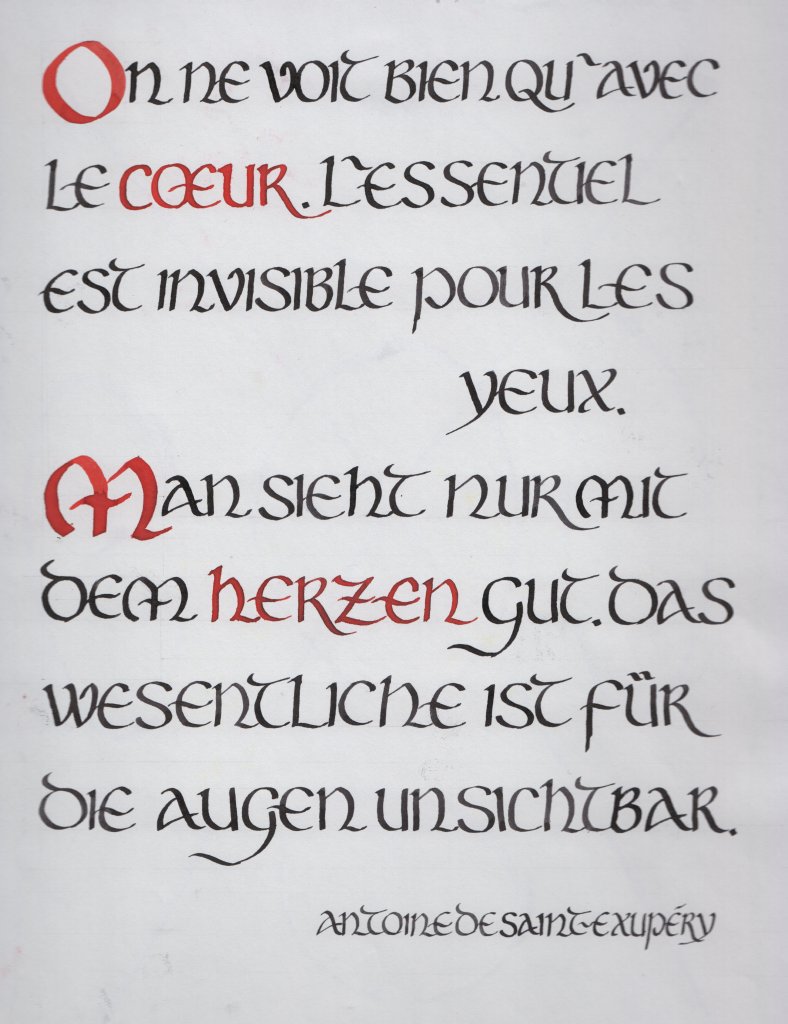 On ne voit bien qu'avec
le cœur. L'essentiel
est invisible pour les
yeux.
Man sieht nur mit
dem herzen gut. Das
wesentliche ist für
die augen unsichtbar.
Antoine de Saint-Exupéry